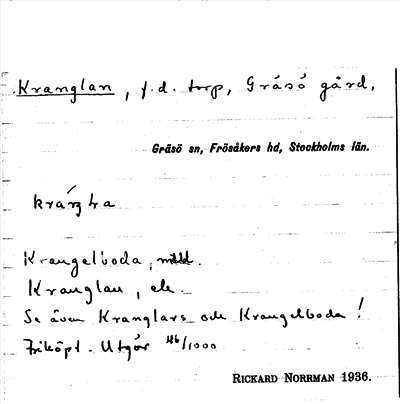 Kranglan, f.d. torp, Gräsö gård,
Gräsö sn, Frösåkers hd, Stockholms län.
Krangelboda,
Kranglan, ek.
Se även Kranglars och Krangelboda!
Friköpt. Utgör 46/1000
RICKARD NORRMAN 1936.